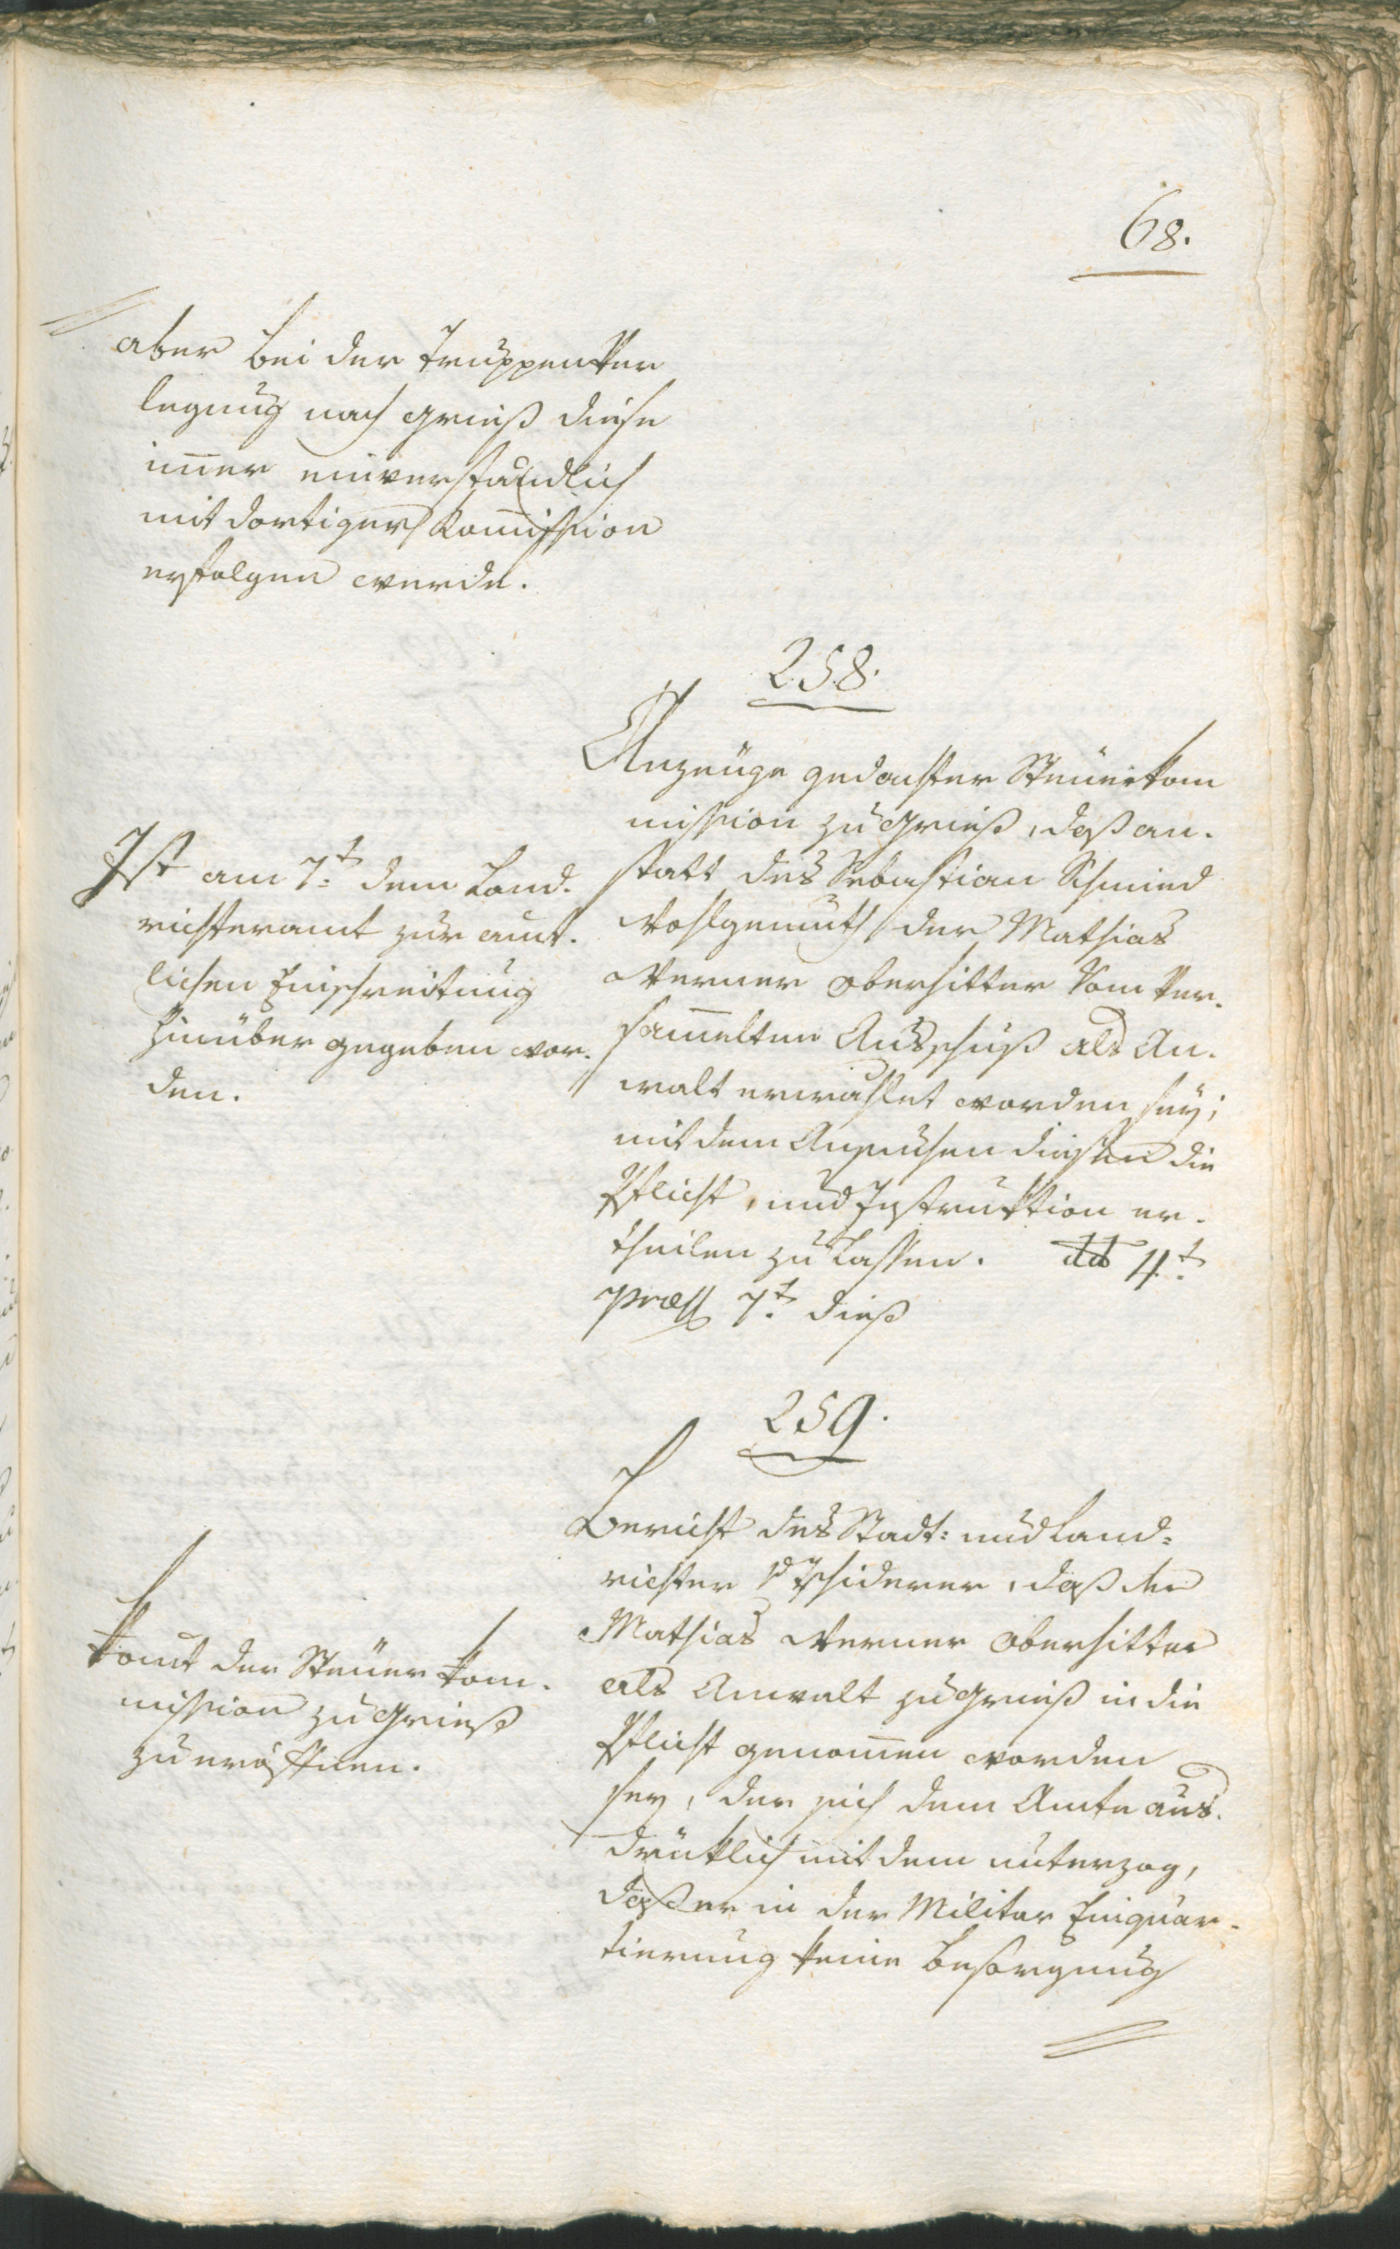 68.
aber bei der Truppen Ver
legung nach Grieß diese
im̄er einverständlich
mit dortiger Kom̄ission
erfolgen werde.
258.
Anzeige gedachter Steuerkom
mission zu Grieß, daß an-
statt des Sebastian Schmied
Wohlgemuth der Mathias
Werner Oberhitter Vom Ver-
sam̄elten Ausschuß als An-
walt erwählet worden seÿ;
mit dem Ansuchen diesen die
Pflicht, und Instruktion er-
theilen zu lassen. dd 4t.
præss 7t. dieß
Ist am 7t. dem Land-
richteramt zur amt-
lichen Einschreitung
hinüber gegeben wor-
den.
259.
Bericht des Stadt: und Land-
richter v Tschiderer, daß der
Mathias Werner Oberhitter
als Anwalt zu Grieß in die
Pflicht genom̄en worden
seÿ, der sich dem Amte aus-
drüklich mit dem unterzog,
daß er in der Militar Einquar-
tierung keine Besorgung
Kom̄t der Steuer Kom-
mission zu Grieß
zu eröffnen.